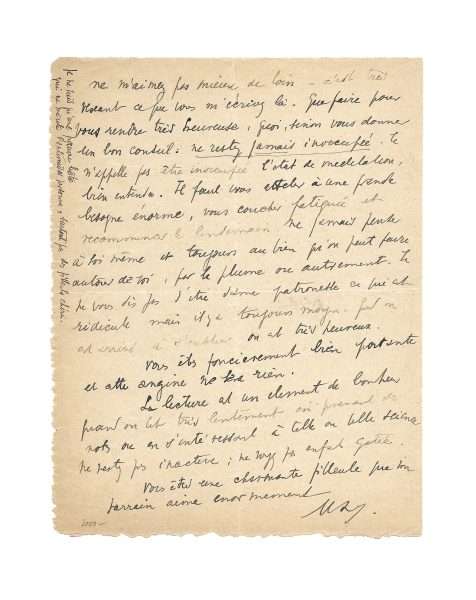 ne m'aimez pas mieux de loin - c'est très
ce que vous m'écrivez là. Que faire pour
vous rendre très heureuse, quoi, sinon vous donner
un bon conseil: ne restez jamais inoccupée. Je
n'appelle pas être inoccupée l'état de méditation,
bien entendu. Il faut vous atteler à une grande
besogne énorme, vous coucher fatiguée et
recommencer le lendemain ne jamais penser
à soi même et toujours au bien qu'on peut faire
autour de soi, par la plume ou autrement. Je
ne vous dis pas d'être dame patronesse ce qui est
ridicule mais il y a toujours moyen. Quand on
est arrivé à s'oublier on est très heureux.
Vous êtes foncièrement bien portante
et cette angine ne sera rien.
La lecture est un élément de bonheur
quand on lit très lentement en prenant des
notes ou en s'intéressant à telle ou telle science
ne restez pas inactive; ne soyez pas enfant gâtée.
Vous êtes une charmante filleule que son
parrain aime énormément